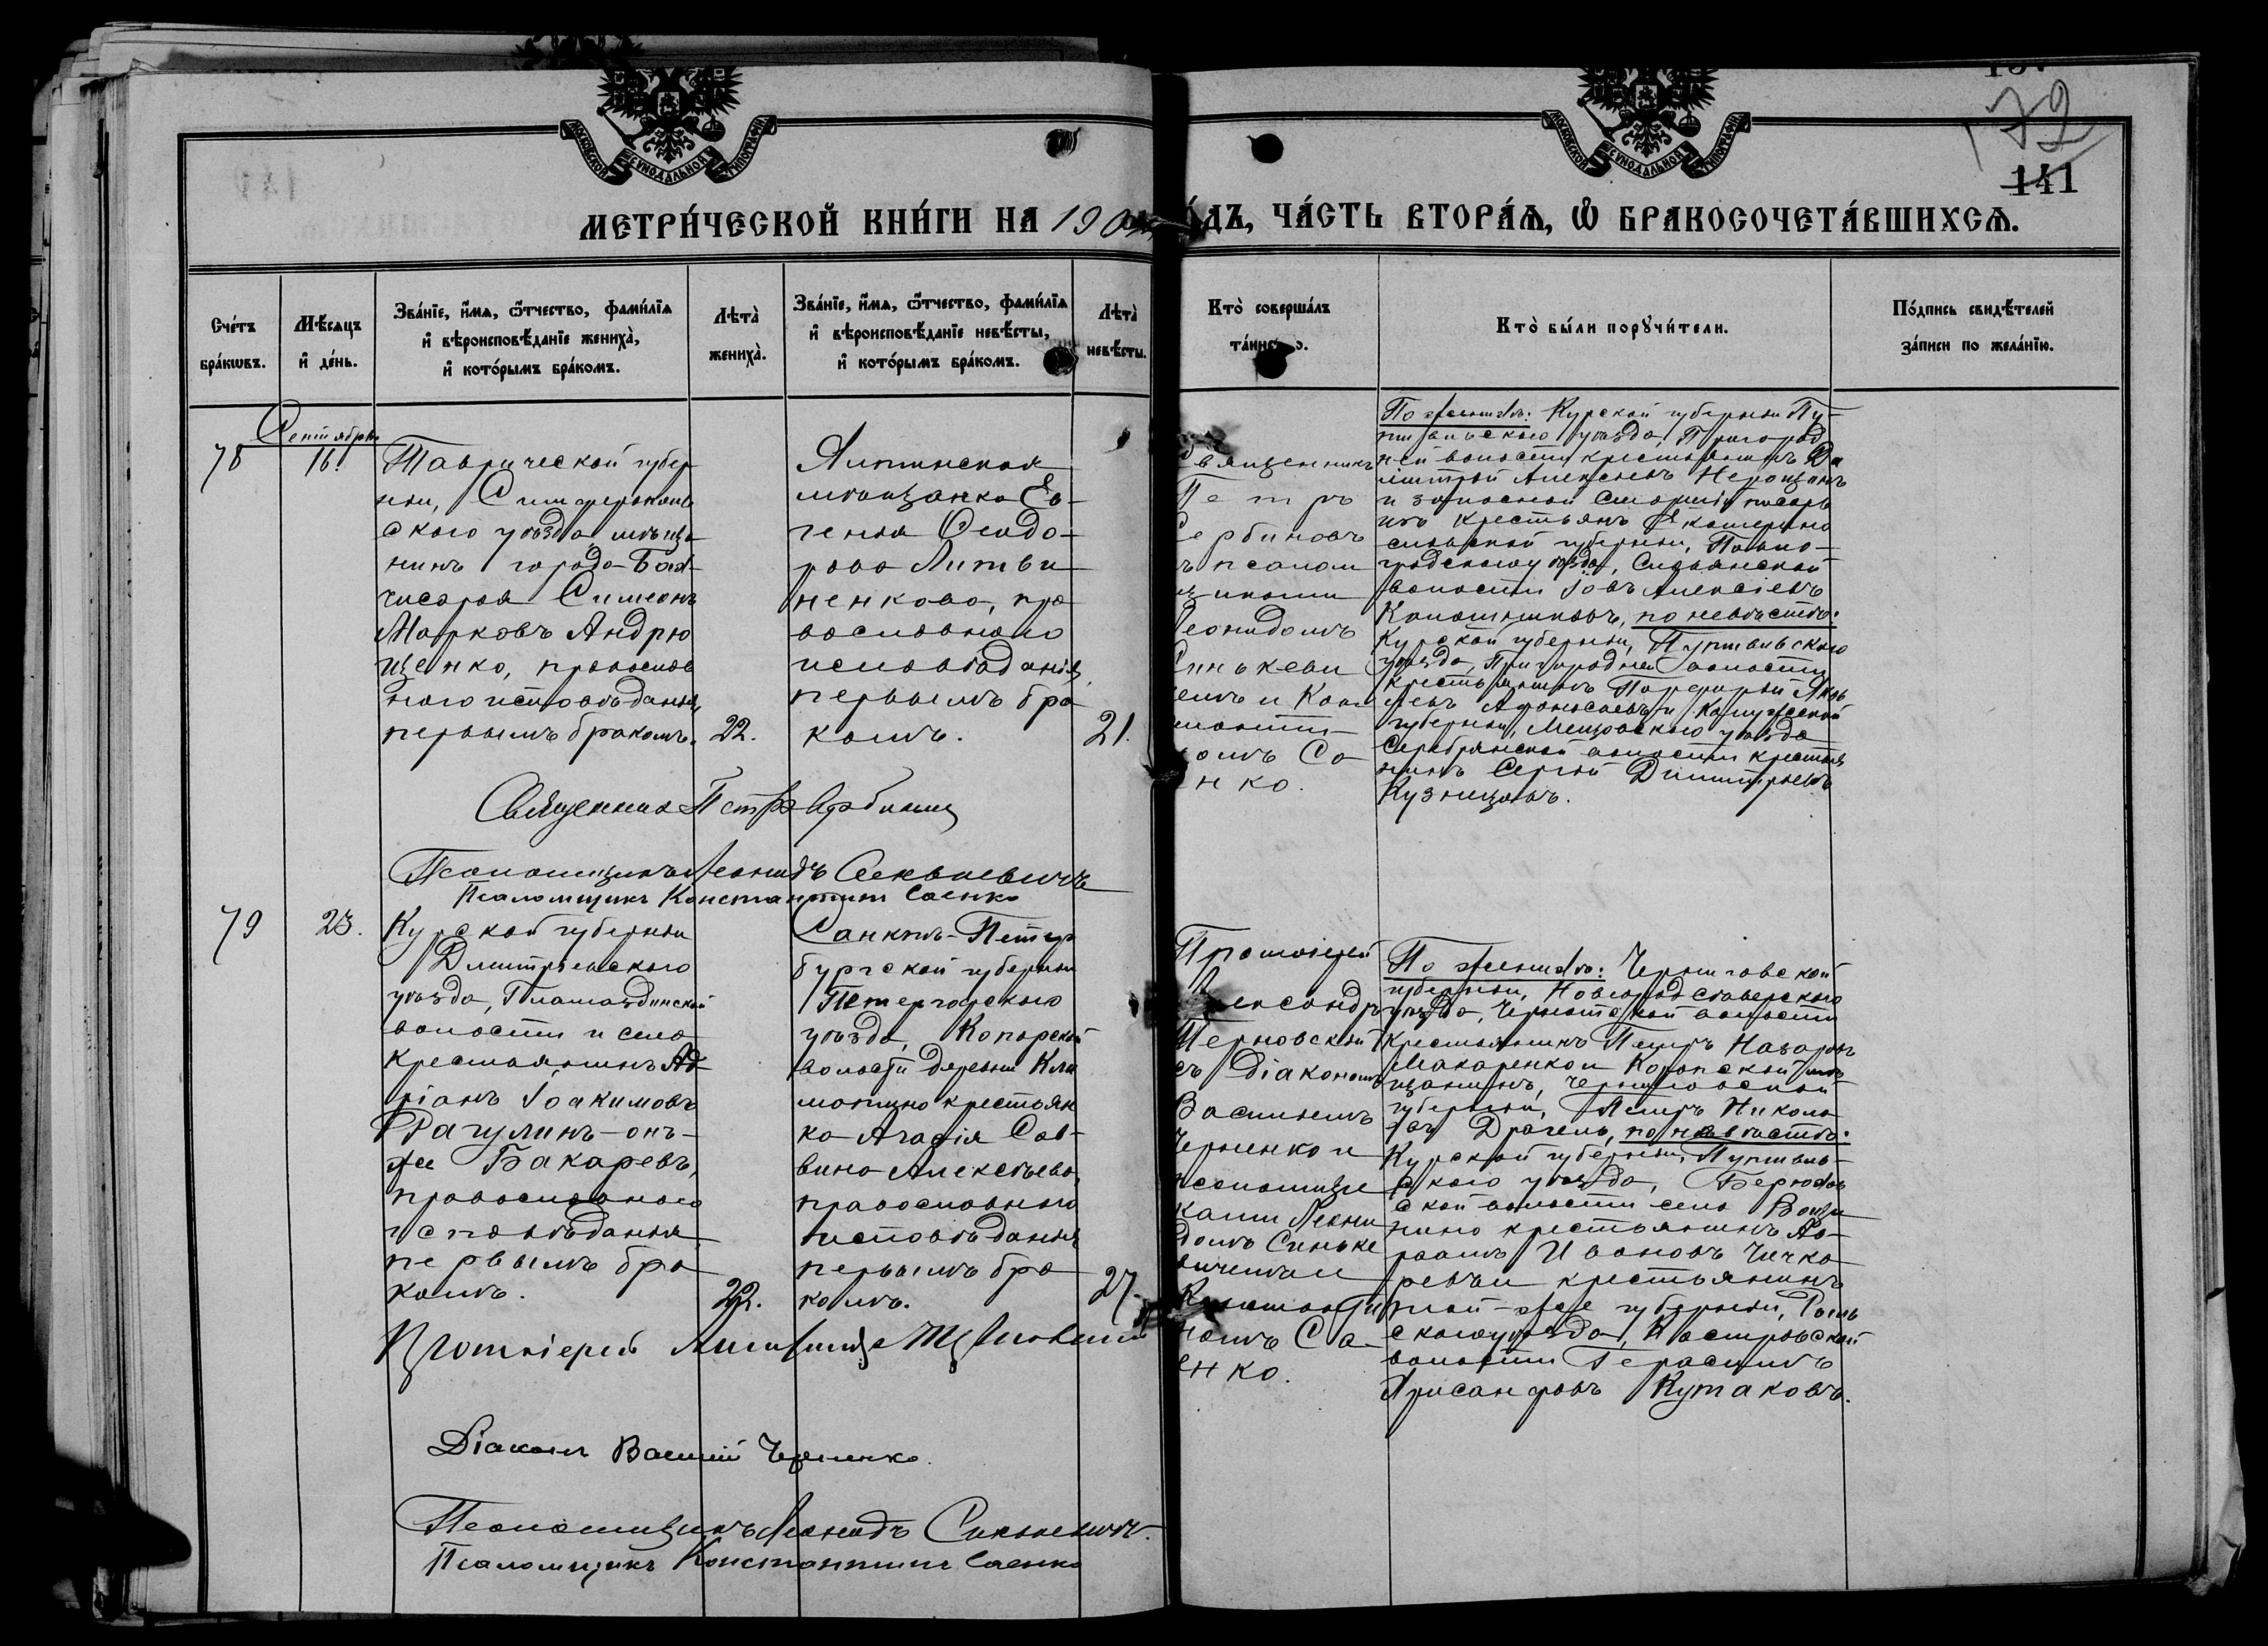 МОСКОВСКОЙ СѴНОДАЛЬНОЙ ТИПОГРАФІИ
МОСКОВСКОЙ СѴНОДАЛЬНОЙ ТИПОГРАФІИ
172
141
МЕТРИ́ЧЕСКОЙ КНИ́ГИ НА 190
ДЪ, ЧА́СТЬ ВТОРА́Я, Ѡ БРАКОСОЧЕТА́ВШИХСЯ.
Сче́тъ
бра́кѡвъ.
Мѣ́сяцъ
и҆ де́нь.
Зва́нїе, и҆́мя, ѻ҆́тчество, фами́лїя
и҆ вѣроисповѣ́данїе жениха̀,
и҆ кото́рымъ бра́комъ.
Лѣта̀
жениха̀.
Зва́нїе, и҆́мя, ѻ҆́тчество, фами́лїя
и҆ вѣроисповѣ́данїе невѣ́сты,
и҆ кото́рымъ бра́комъ.
Лѣта̀
невѣ́сты.
Кто̀ соверша́лъ
Кто̀ бы́ли порꙋчи́тели.
По́дпись свидѣ́телей
за́писи по жела́нїю.
78
Сентябрь
16.
Таврической губер
нiи, Симферополь
скаго уѣзда мѣща
нинъ города Бах
чисарая Симеонъ
Марковъ Андрю
щенко, православ
наго исповѣданiя,
первымъ бракомъ.
22.
Ялтинская
мѣщанка Ев-
генiя Өеодо-
рова Литви
ненкова, пра
вославнаго
исповѣданiя,
первымъ бра
комъ.
21.
Священникъ
Петръ
Сербиновъ
съ псалом
щиками
Леонидомъ
Синькеви
чемъ и Кон
станти-
номъ Са
енко.
По женихѣ: Курской губернiи Пу-
тивльскаго уѣзда, Пригород
ней волости крестьянинъ Ди
митрiй Алексѣевъ
и запасной старшiй писарь
изъ крестьянъ Екатерино
славской губернiи, Павло-
градскаго уѣзда, Славянской
волости Iовъ Алексiевъ
по невѣстѣ:
Курской губернiи, Путивльскаго
уѣзда, Пригородней волости
крестьянинъ Порфирiй Яков
левъ Афанасьевъ и Калужской
губернiи, Мещовскаго уѣзда
Серебрянской волости крестья
нинъ Сергѣй Димитрiевъ
Кузнецовъ.
Священникъ Петръ Сербиновъ
Псаломщикъ Леонидъ Синькевичъ
Псаломщикъ Константинъ Саенко
79
23.
Курской губернiи
Дмитрiевскаго
уѣзда,
волости и села
крестьянинъ Ад-
рiанъ Iоакимовъ
Рагулинъ-онъ-
же Бакаревъ,
православнаго
исповѣданiя,
первымъ бра
комъ.
22.
Санктъ-Петер
бургской губернiи
Петергофскаго
уѣзда, Копорской
волости деревни Кли
матино крестьян
ка Агафiя Сав-
вина Алексѣева,
православнаго
исповѣданiя
первымъ бра
комъ.
27.
Протоiерей
Александръ
Терновскiй
съ дiакономъ
Василiемъ
Черненко и
псаломщи
ками Леони
домъ Синьке
вичемъ и
Константи
номъ Са-
енко.
По женихѣ: Черниговской
губернiи, Новгородсѣверскаго
уѣзда, волости
крестьянинъ Петръ Назаровъ
Макаренко и Коропскiй мѣ
щанинъ, Черниговской
губернiи, Петръ Никола
евъ Драгель, по невѣстѣ:
Курской губернiи, Путивль-
скаго уѣзда, Берюхов
ской волости села Воще
нино крестьянинъ Ав-
раамъ Ивановъ Чичка
ревъ и крестьянинъ
той-же губернiи, Рыль
скаго уѣзда, Костровской
волости Герасимъ
Хрисанфовъ Кутаковъ.
Протоiерей
Дiаконъ Василiй Черненко.
Псаломщикъ Леонидъ Синькевичъ.
Псаломщикъ Константинъ Саенко